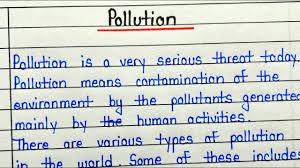 Pollution
Pollution is a very serious threat today.
Pollution means contamination of the
environment by the pollutants generated
mainly by the human activities.
There are various types of pollution
in the world. Some of these include